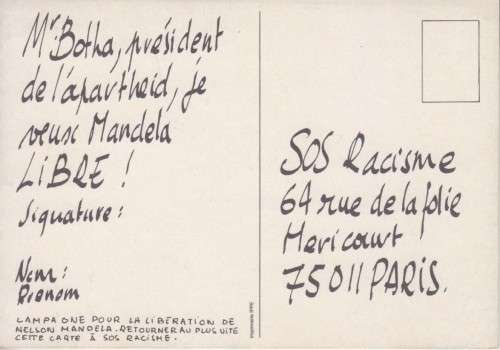 Mr Botha, président
de l'apartheid, je
veux Mandela
LiBRE !
Signature :
Nom :
Prenom
CAMPAGNE POUR LA LIBÉRATION DE
NELSON MANDELA. RETOURNER AU PLUS VITE
CETTE CARTE À SOS RACISME.
SOS Racisme
64 rue de la folie
Mericourt
75011 PARIS.